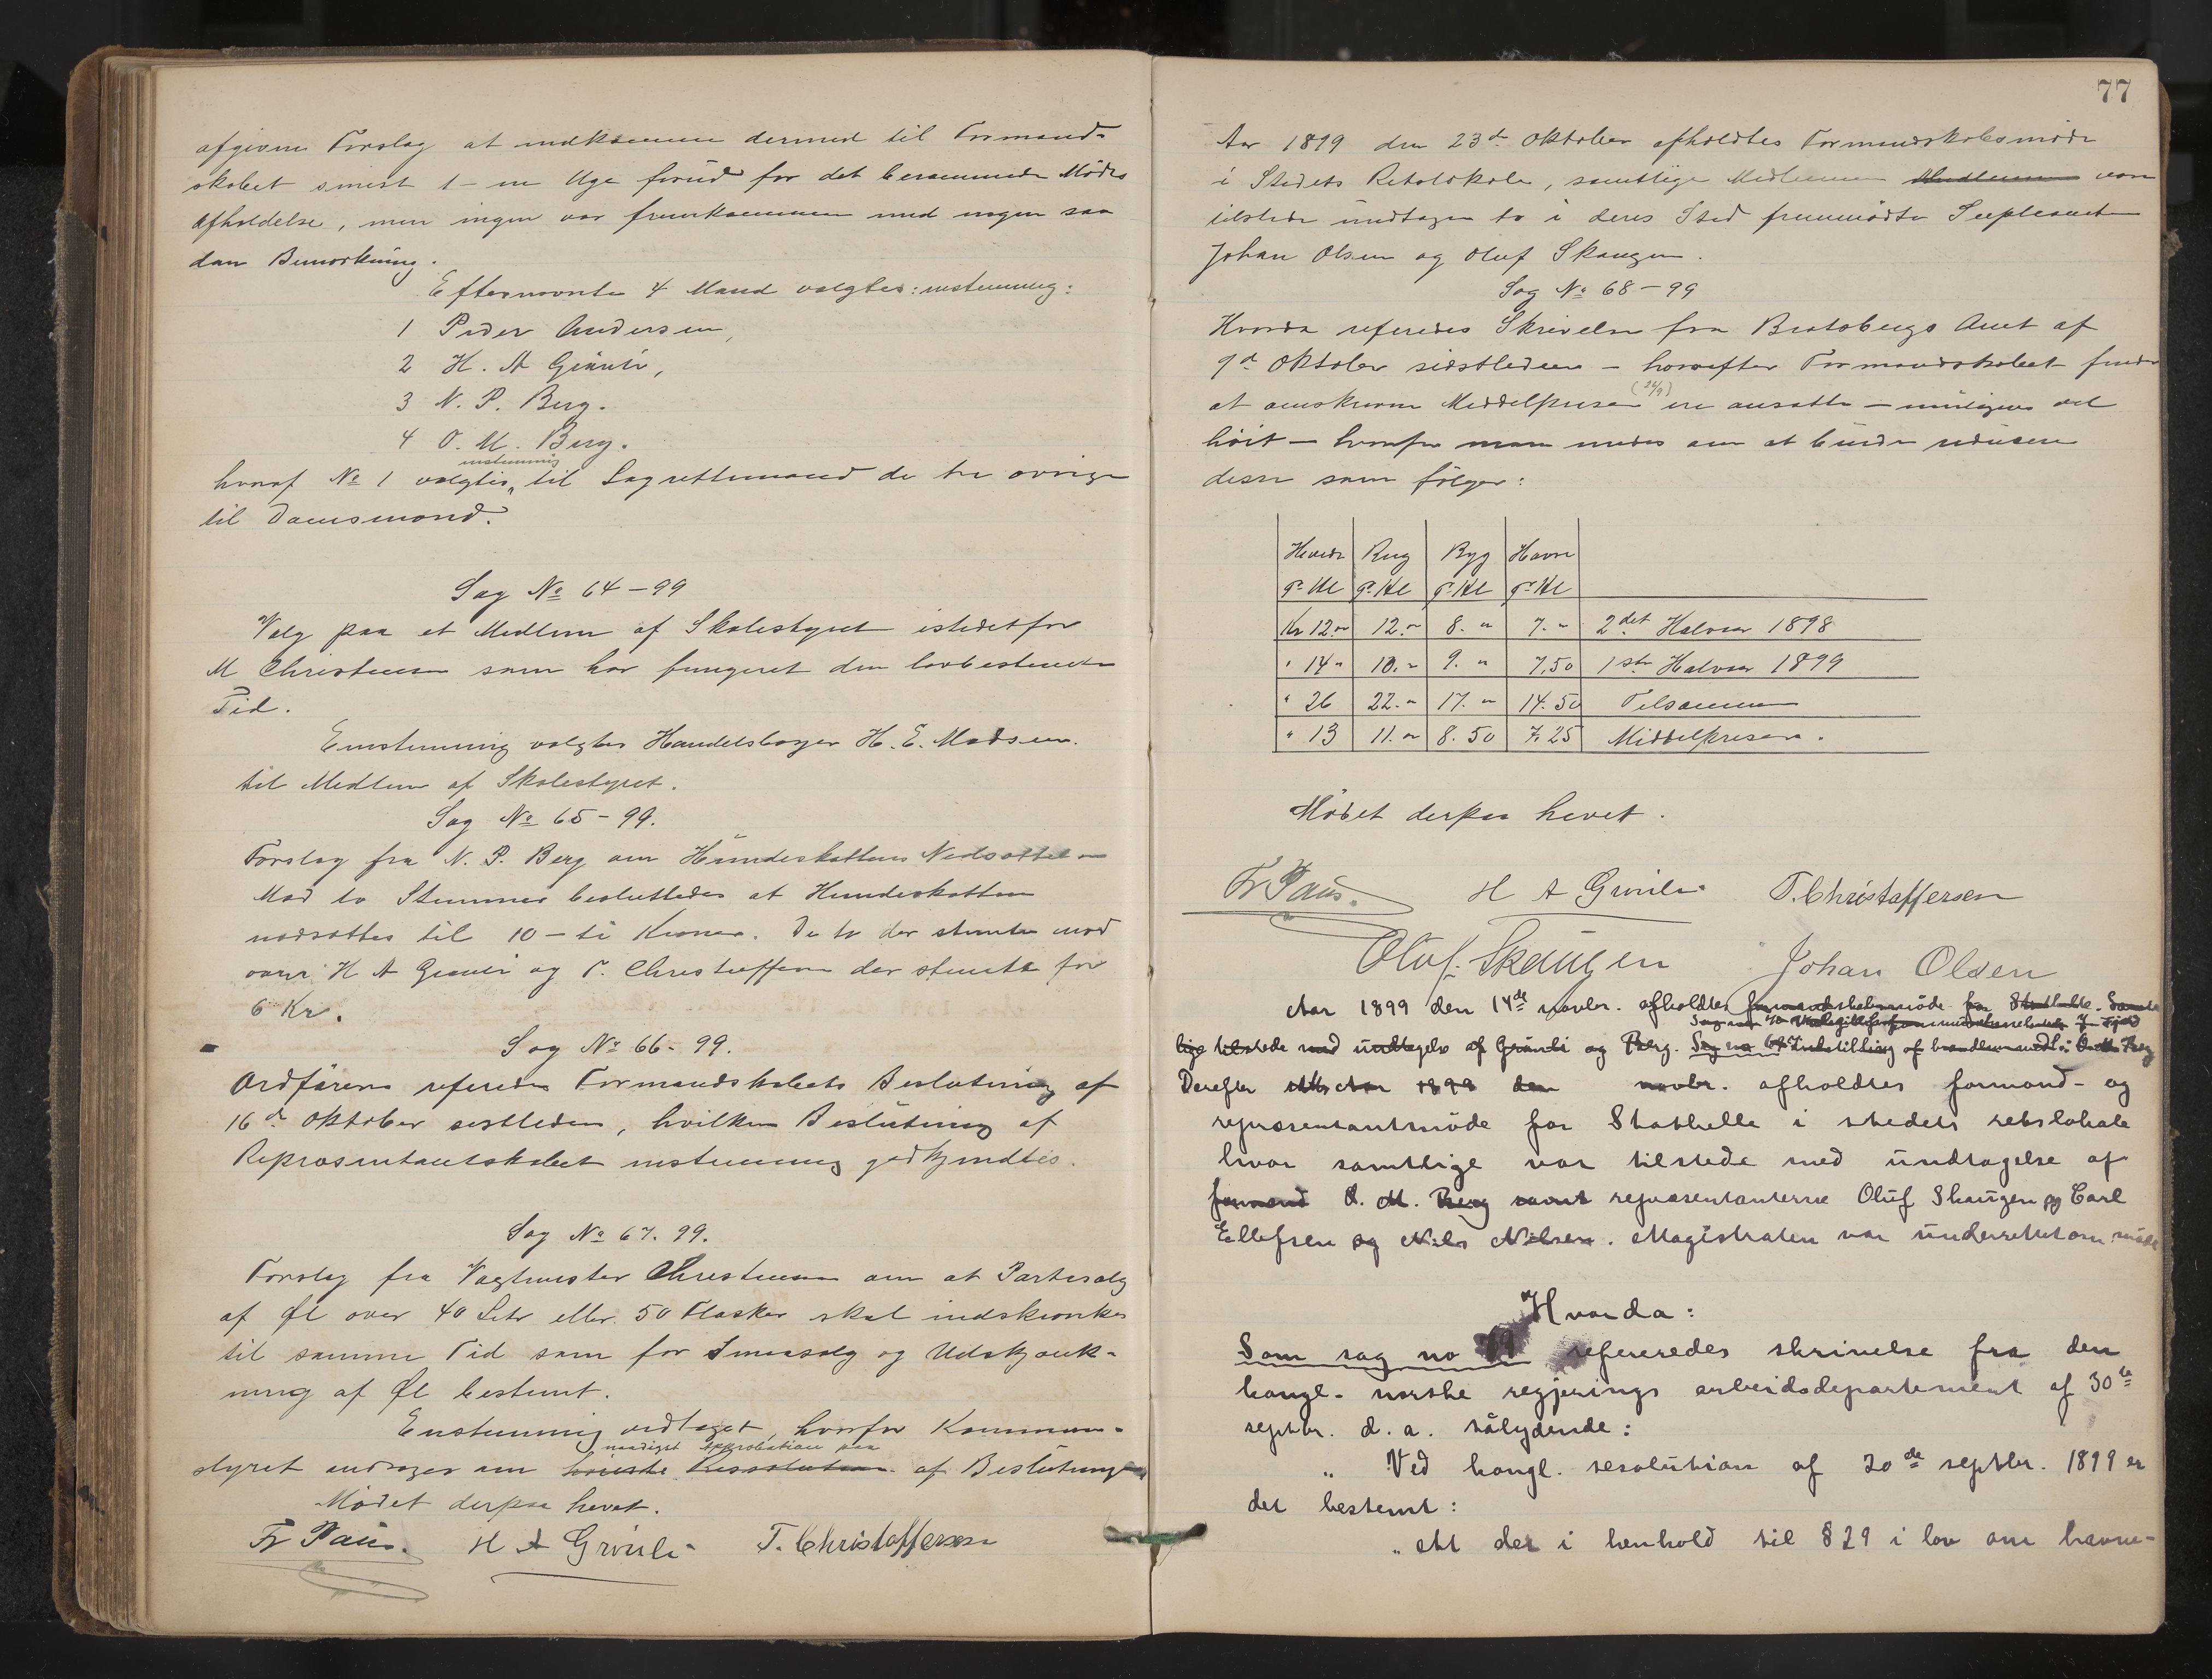 afgivne Forslag at indkomme dermed til Formand-
skabet senest 1 - en Uge forud for det berammede Mödes
Afholdelse, men ingen var fremkommen med nogen saa
dan Bemærkning.
Efternævnte 4 Mænd valgtes: enstemmig:
1 Peder Andersen,
2 H. A Grönli,
3 N. P. Berg.
4 O. M. Berg.
enstemmig
hvoraf No 1 valgtes til Lagrettemand de tre øvrige
til Domsmænd.
Sag No 64-99
Valg paa et Medlem af Skolestyret istedetfor
M Christensen som har fungeret den lovbestemte
Tid.
Enstemmig valgtes Handelsborger H. E. Madsen.
til Medlem af Skolestyret.
Sag No 65-99.
Forslag fra N. P. Berg om Hundeskattens Nedsættelse
Mod to Stemmer besluttedes at Hundeskatten
nedsættes til 10 - ti Kroner. De to der stemte mod
var H A Grönli og T. Christoffersen der stemte for
6 Kr.
Sag No 66-99.
Ordføreren referede Formandskabets Beslutning af
16de Oktober sistleden, hvilken Beslutning af
Repræsentantskabet enstemmig godkjendtes.
Sag No 67.99.
Forslag fra Vagtmester Christensen om at Partisalg
af Øl over 40 Liter eller 50 Flasker skal indskrænkes
til samme Tid som for Smaasalg og Udskjænk-
ning af Øl bestemt.
Enstemmig vedtaget, hvorfor Kommune-
naadigst Approbation paa
styret andrager om høieste Ressolution af Beslutningen
Mødet derpaa hevet.
Fr Paus. H A Grönli T. Christoffersen
77
Aar 1899 den 23de Oktober afholdtes Formandskabsmøde
i Stedets Retslokale, samtlige Medlemmer Medlemmer var
tilstede undtagen to i deres Sted fremmødte Suppleanter
Johan Olsen og Oluf Skaugen.
Sag No 68-99
Hvorda referedes Skrivelse fra Bratsbergs Amt af
9de Oktober sidstleden - hvorefter Formandskabet finder
(26/9)
at omskrevne Middelpriser ere ansatte - muligens vel
höit - hvorfor man enedes om at burde reducere
disse som fölger:
Hvede Rug Byg Havre
pr. Hl pr. Hl pr. Hl pr. Hl
Kr 12.„ 12.„ 8.„ 7.„ 2det Halvaar 1898
„ 14„ 10.„ 9.„ 7,50 1ste Halvaar 1899
„ 26 22.„ 17.„ 14.50 Tilsammen
„ 13 11.„ 8.50 7.25 Middelprisen.
Mödet derpaa hevet.
Fr Paus. H A Grönli T. Christoffersen
Oluf Skaugen Johan Olsen
Aar 1899 den 14de novbr. afholdtes formandskabsmöde for Stathelle. Samt
lige tilstede med undtagelse af Grönli og Berg. Sag no 69 Indstilling af
Derefter Aar 1899 den novbr. afholdtes formand- og
repræsentantmöde for Stathelle i stedets retslokale
hvor samtlige var tilstede med undtagelse af
formand O. M. Berg samt repræsentanterne Oluf Skaugen og Carl
Ellefsen og Nils Nilsen. Magistraten var underrettet om möde
Hvorda:
Som sag no 69 refereredes skrivelse fra den
kongl. norske regjerings arbeidsdepartement af 30te
septbr. d. a. sålydende:
„ Ved kongl. resolution af 20de septbr. 1899 er
det bestemt:
„ At der i henhold til § 29 i lov om havne-